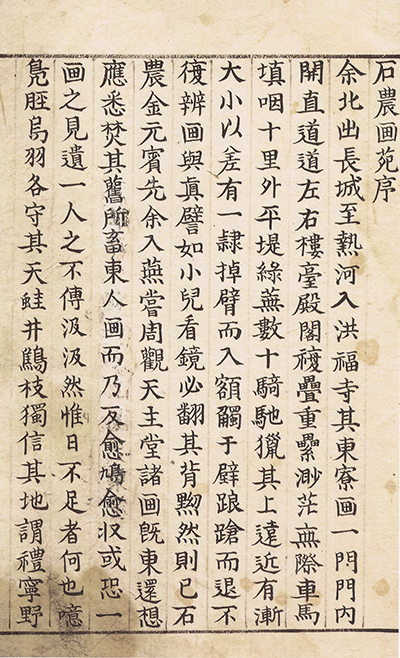 石農画苑序
余北出長城至熱河入洪福寺其東寮画一門門内
開直道道左右樓臺殿閣複疊重纍渺茫無際車馬
填咽十里外平堤綠蕪數十騎馳獵其上遠近有漸
大小以差有一隷掉臂而入額觸于壁踉蹌而退不
復辨画與眞譬如小兒看鏡必翻其背黙然則已石
農金元賓先余入燕嘗周觀天主堂諸画旣東還想
應悉焚其舊所畜東人画而乃反愈鳩愈收或恐一
画之見遺一人之不傳汲汲然惟日不足者何也噫
鳧脛烏羽各守其天蛙井鷦枝獨信其地謂禮寧野